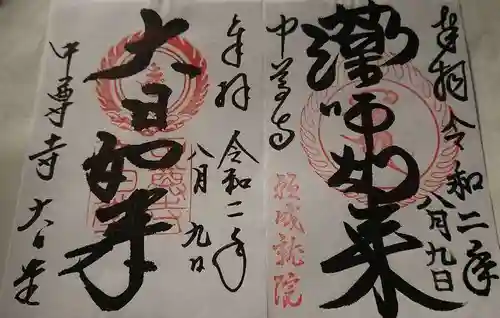 奉拝 令和二年
八月九日
薬師如来
中尊寺
願成就院
奉拝
令和二年
八月九日
大日如来
中尊寺 大日堂